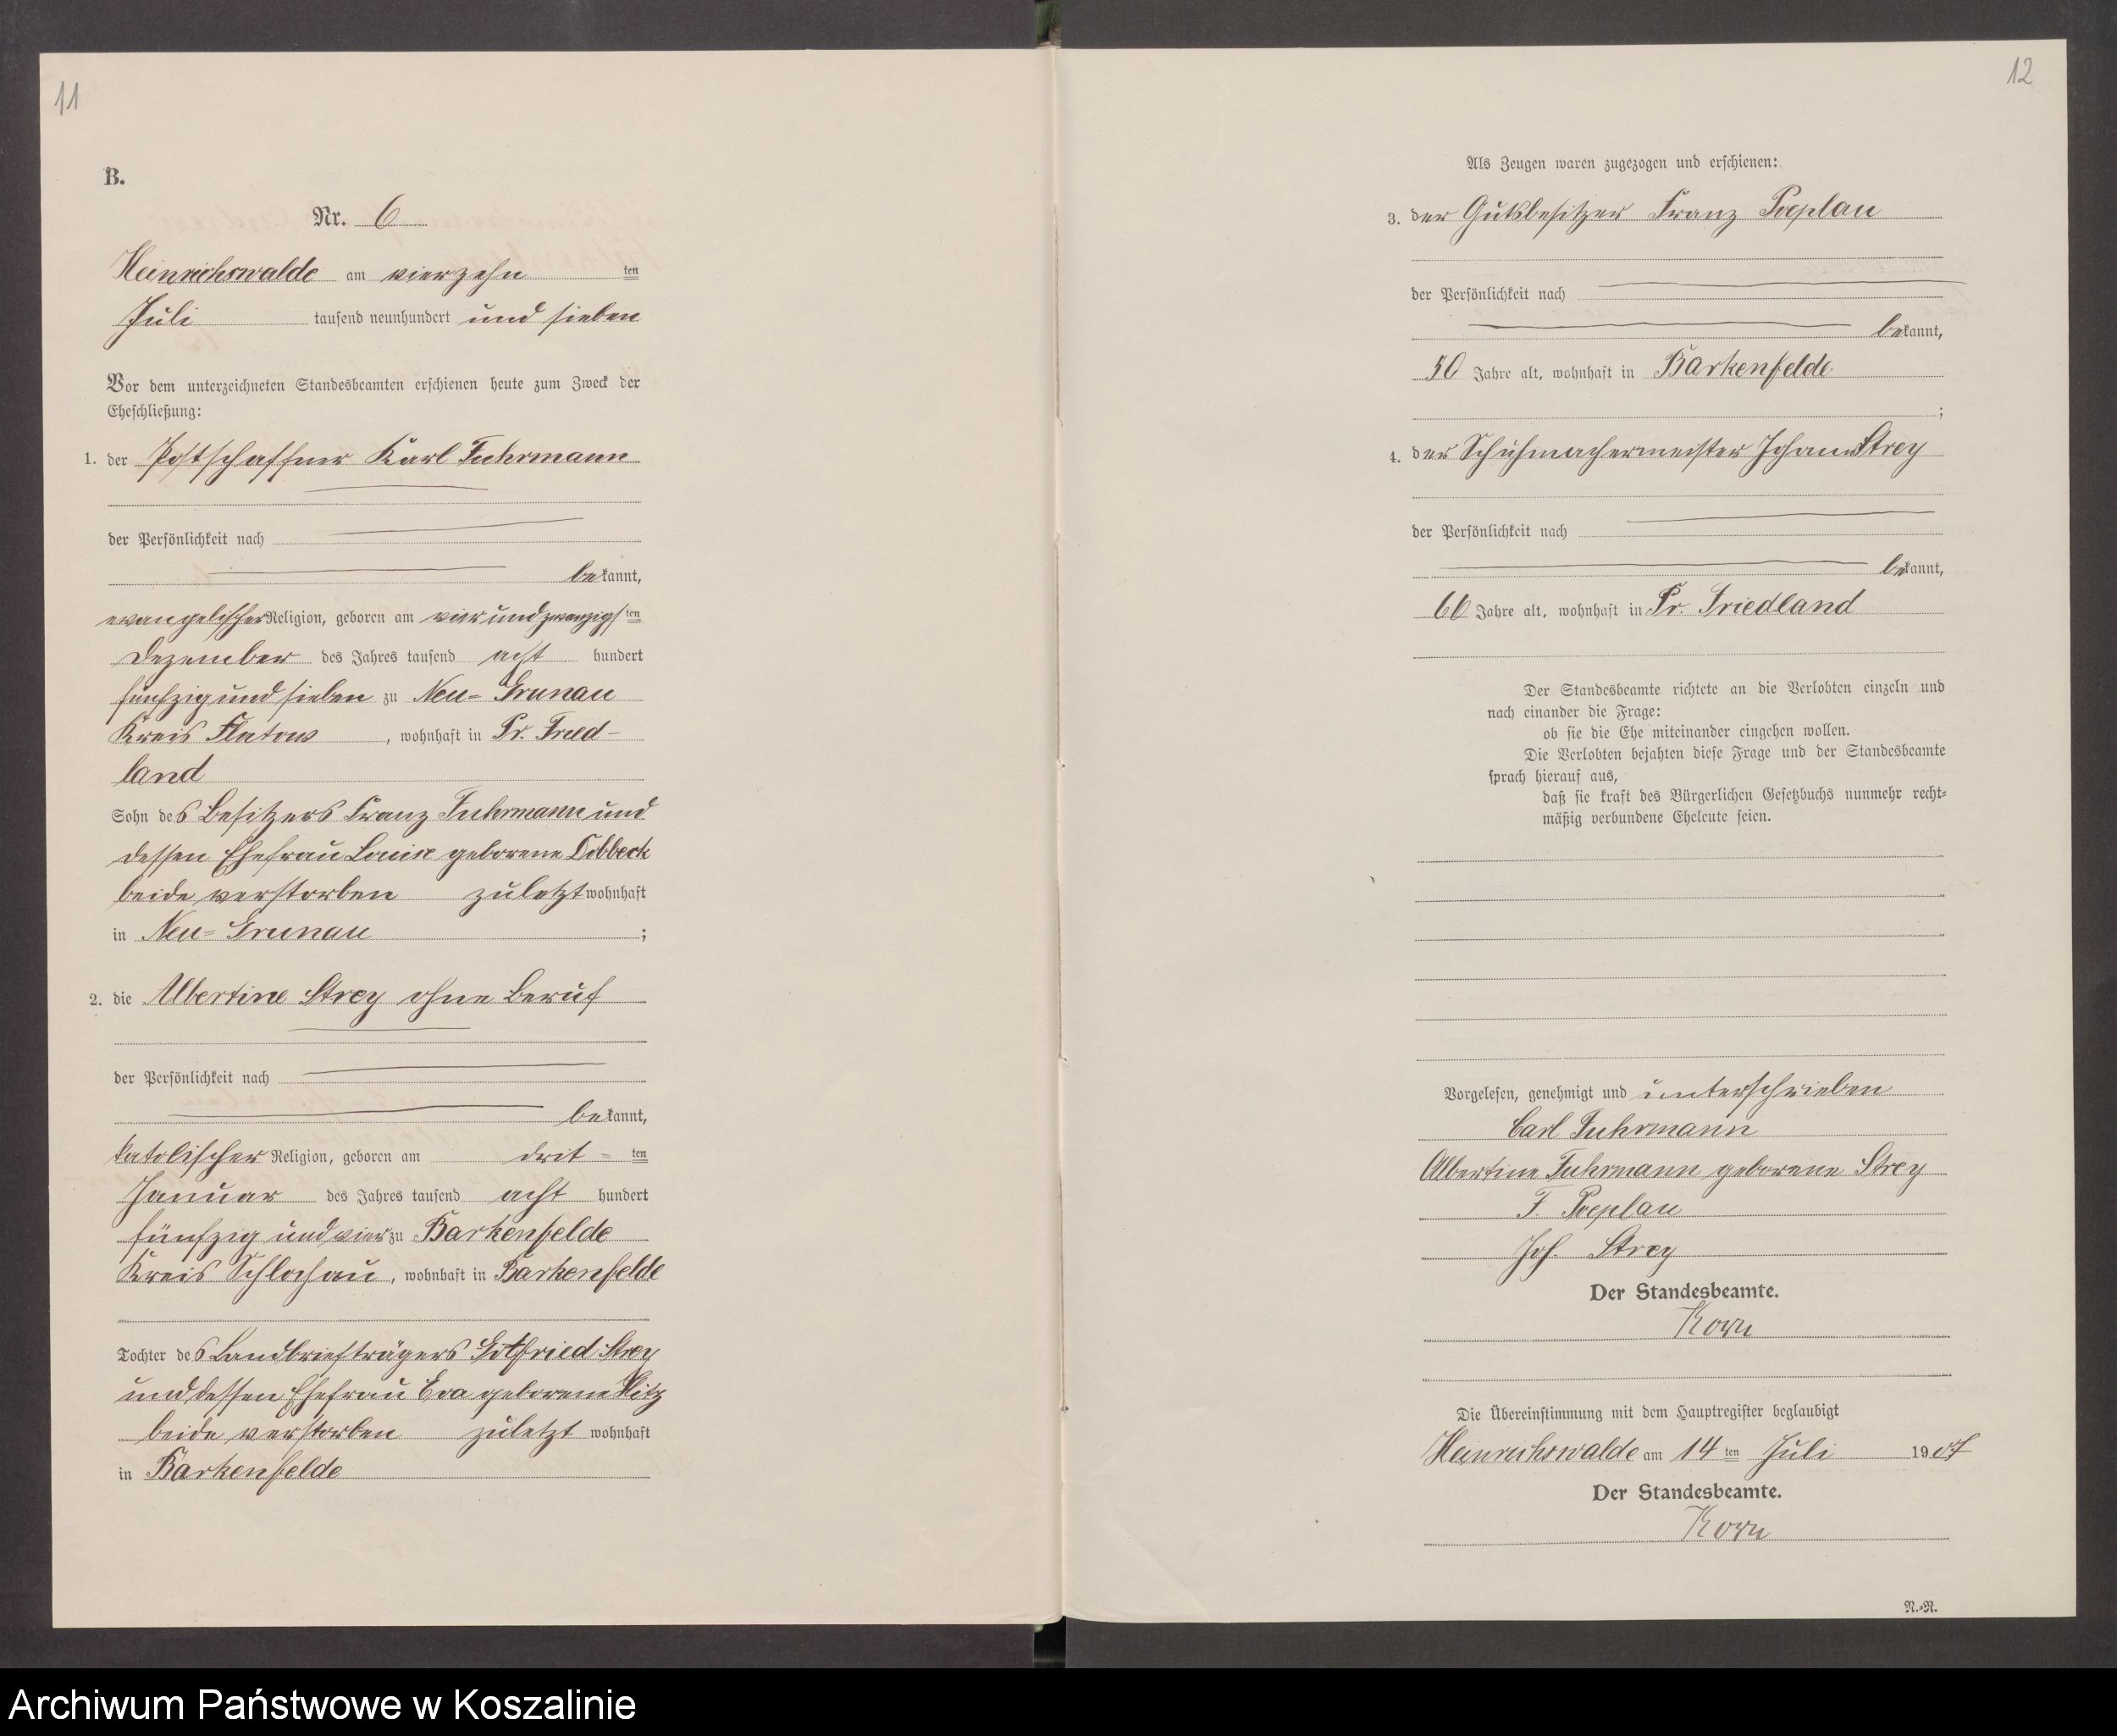 11
B.
Nr. 6
Heinrichswalde am vierzehn ten
Juli tausend neunhundert und sieben
Vor dem unterzeichneten Standesbeamten erschienen heute zum Zweck der
Eheschließung:
1. der Postschaffner Karl Fuhrmann
der Persönlichkeit nach
bekannt,
evangelischer Religion, geboren am vierundzwanzigsten
Dezember des Jahres tausend acht hundert
fünfzig und sieben zu Neu-Grunau
Kreis Flatow, wohnhaft in Pr. Fried-
land
Sohn des Besitzers Franz Fuhrmann und
dessen Ehefrau Louise geborene
beide verstorben zuletzt wohnhaft
in Neu-Grunau;
2. die Albertine Strey ohne Beruf
der Persönlichkeit nach
bekannt,
katolischer Religion, geboren am drit-ten
Januar des Jahres tausend acht hundert
fünfzig und vier zu Barkenfelde
Kreis Schlochau, wohnhaft in Barkenfelde
Tochter des Landbriefträgers Gottfried Strey
und dessen Ehefrau Eva geborene
beide verstorben zuletzt wohnhaft
in Barkenfelde
12
Als Zeugen waren zugezogen und erschienen:
3. der Gutsbesitzer Franz Poeplau
der Persönlichkeit nach
bekannt,
50 Jahre alt, wohnhaft in Barkenfelde
;
4. der Schuhmachermeister Johann Strey
der Persönlichkeit nach
bekannt,
66 Jahre alt, wohnhaft in Pr. Friedland
Der Standesbeamte richtete an die Verlobten einzeln und
nach einander die Frage:
ob sie die Ehe miteinander eingehen wollen.
Die Verlobten bejahten diese Frage und der Standesbeamte
sprach hierauf aus,
daß sie kraft des Bürgerlichen Gesetzbuchs nunmehr recht-
mäßig verbundene Eheleute seien.
Vorgelesen, genehmigt und unterschrieben
Carl Fuhrmann
Albertine Fuhrmann geborene Strey
F. Poeplau
Joh. Strey
Der Standesbeamte.
Korn
Die Übereinstimmung mit dem Hauptregister beglaubigt
Heinrichswalde am 14 ten Juli 1907
Der Standesbeamte.
Korn
R.-R.
Archiwum Państwowe w Koszalinie